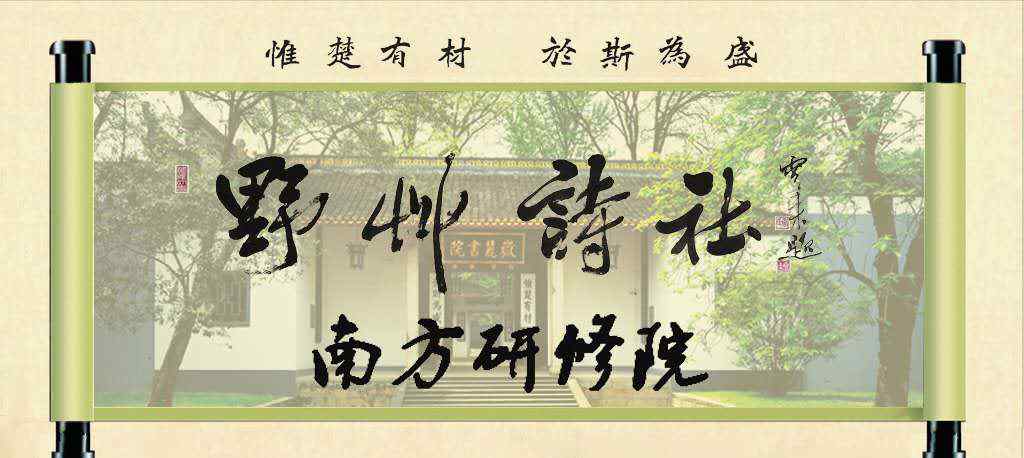 惟楚有材 於斯為盛
野艸詩社
題
南方研修院
嶽麓書院
惟楚有材